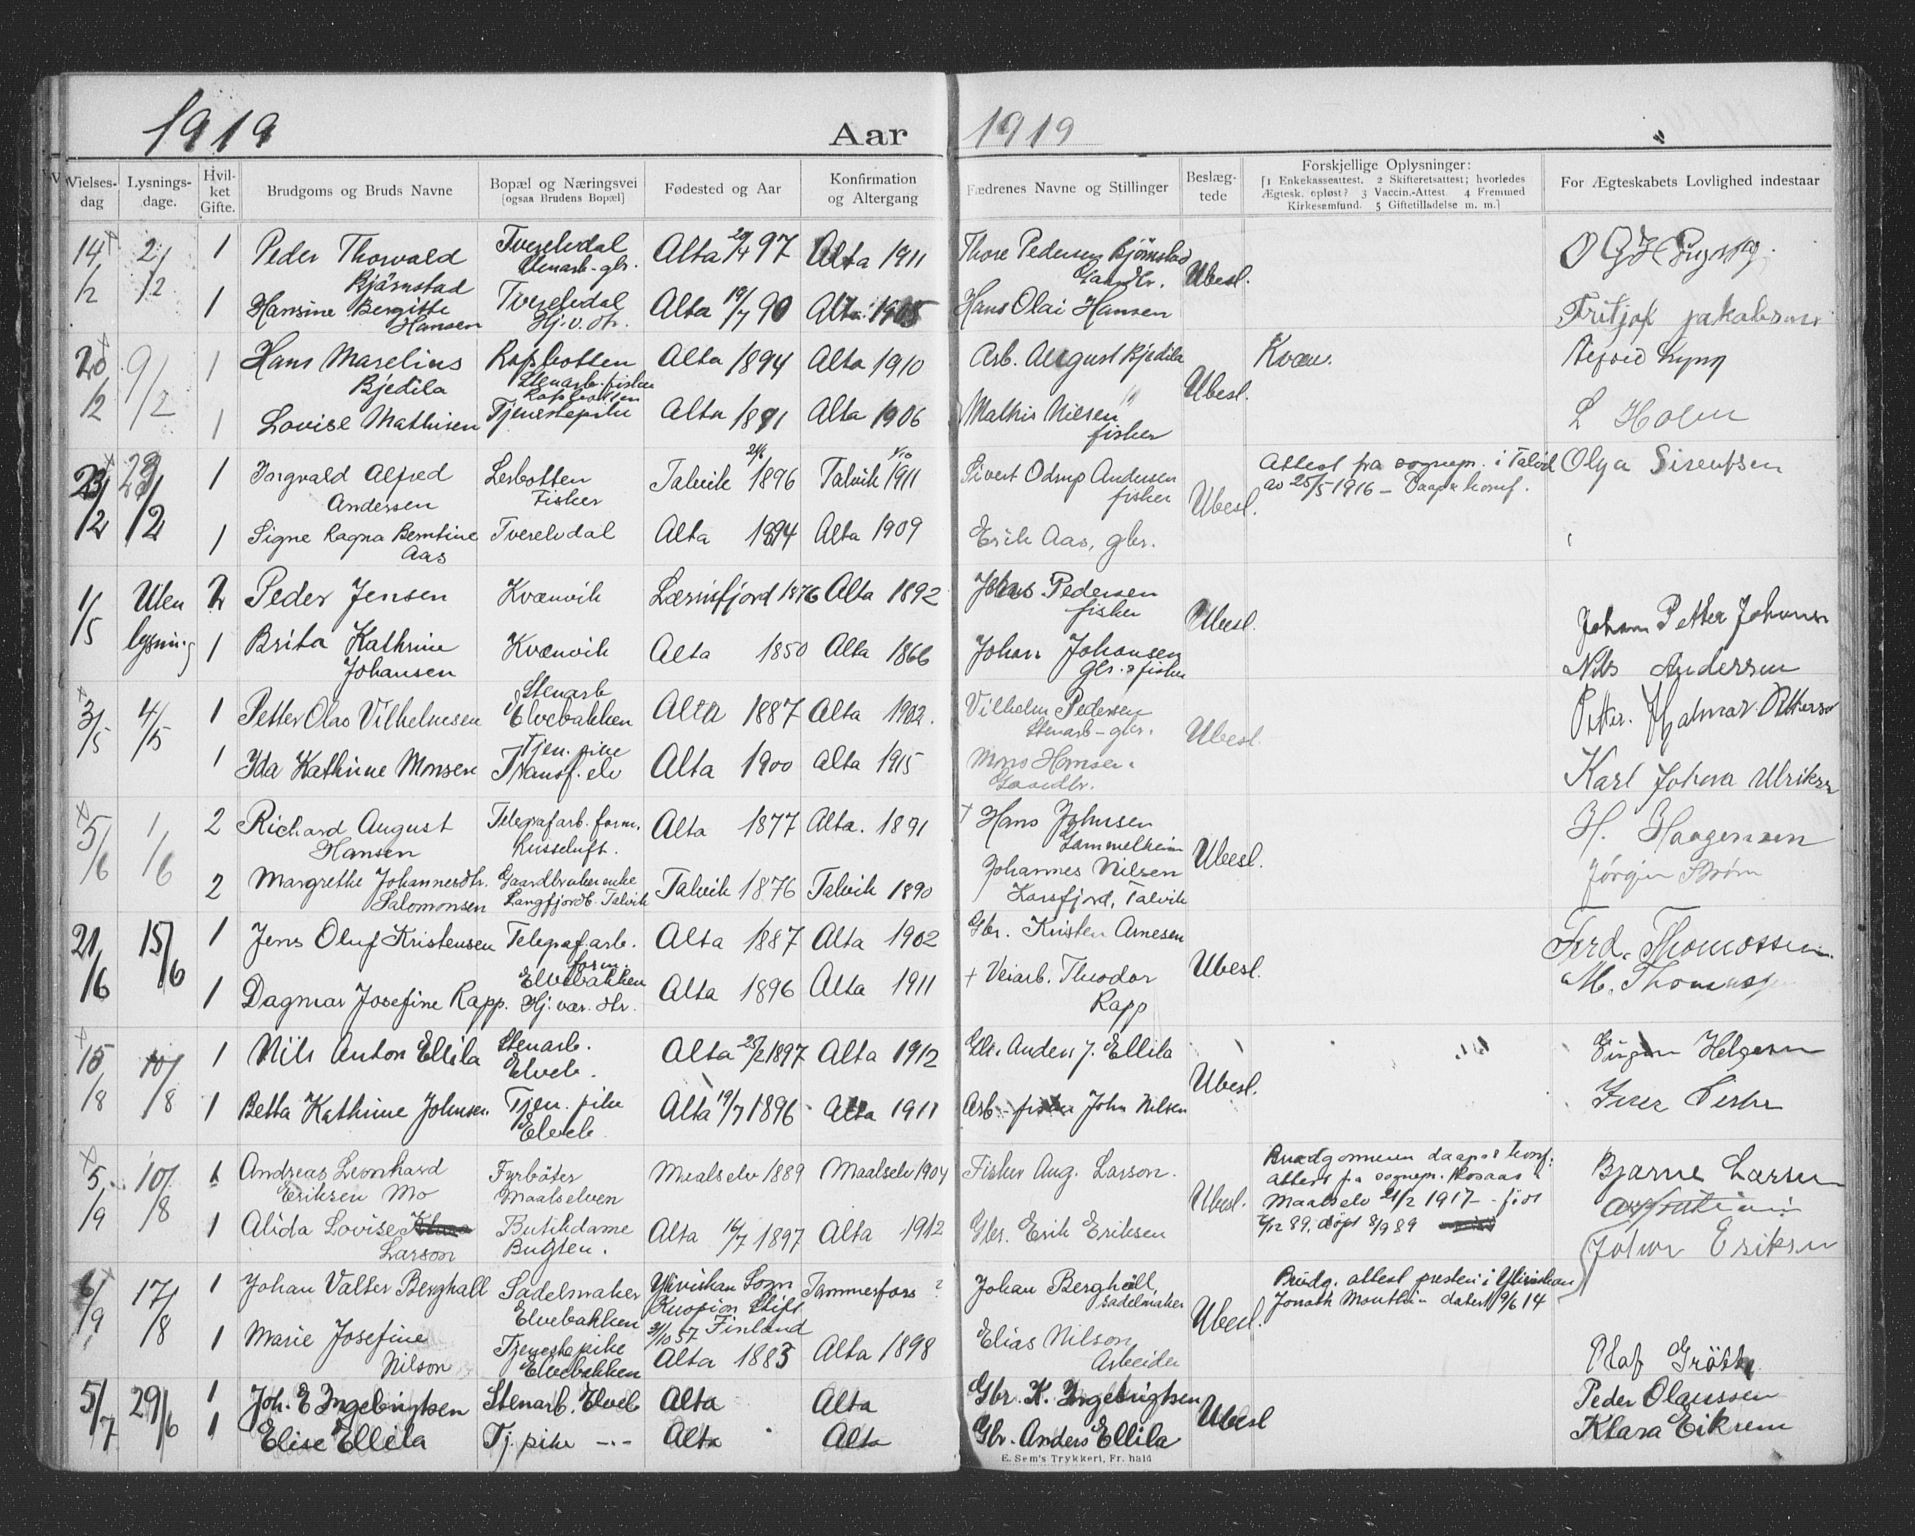 1919 Aar 1919
Vielses-dag Lysnings-dage. Hvil-ket Gifte. Brudgoms og Bruds Navne Bopæl og Næringsvei [ogsaa Brudens Bopæl] Fødested og Aar Konfirmation og Altergang Fædrenes Navne og Stillinger Beslæg-tede Forskjellige Oplysninger: [1 Enkekasseattest. 2 Skifteretsattest; hvorledes Ægtesk. opløst? 3 Vaccin.-Attest 4 Fremmed Kirkesamfund. 5 Giftetilladelse m. m.] For Ægteskabets Lovlighed indestaar
14/2 2/2 1 Peder Thorvald Bjørnstad Tverelvdal Stenarb-gbr. Alta 20/4 97 Alta 1911 Thore Pedersen Bjørnstad Gaardbr. Ubesl.
1 Hansine Bergitte Hansen Tverelvdal Hj.v. dtr. Alta 19/7 90 Alta 1905 Hans Olai Hansen Fritjof Jakobsen
20/2 9/2 1 Hans Marelius Bjedila Rafsbotten Stenarb-fisker Alta 1894 Alta 1910 Arb. August Bjedila Ubesl. Kvæn.
1 Lovise Mathisen Rafsbotten Tjenestepike Alta 1891 Alta 1906 Mathis Nilsen fisker L Holm
23/2 23/2 1 Ingvald Alfred Andersen Lerbotten Fisker Talvik 21/6 1896 Talvik 1/10 1911 Sivert Odrup Andersen fisker Ubesl. Attest fra sognepr. i Talvik av 25/5 1916 - Daap & konf. Olga Sivertsen
1 Signe Ragna Berntine Aas Tverelvdal Alta 1894 Alta 1909 Erik Aas, gbr.
1/5 Uten lysning 2 Peder Jensen Kvænvik Lærrisfjord 1876 Alta 1892 Johns Pedersen fisker Ubesl. Johan Petter Johans
1 Brita Kathrine Johansen Kvænvik Alta 1850 Alta 1866 Johan Johansen gbr. & fisker Nils Anderssen
3/5 4/5 1 Petter Olas Vilhelmsen Stenarb Elvebakken Alta 1887 Alta 1902. Vilhelm Pedersen Stenarb-gbr. Ubesl. Petter. Hjalmar Pettersen
1 Ida Kathrine Monsen Tjen. pike Transf. elv Alta 1900 Alta 1915 Mons Hansen Gaardbr. Karl Johan Ulriksen
5/6 1/6 2 Richard August Hansen Telegrafarb. form. Russeluft. Alta 1877 Alta. 1891 † Hans Johnsen Gammelheim Ubesl. H. Haagensen
2 Margrethe Johannesdtr. Salomonsen Gaardbrukerenke Langfjordb. Talvik Talvik 1876 Talvik 1890 Johannes Nilsen Korsfjord, Talvik Jørgen Strøm
21/6 15/6 1 Jens Oluf Kristensen Telegrafarb. form. Alta 1887 Alta 1902 Gbr. Kristen Arnesen Ubesl. Ferd. Thomassen.
1 Dagmar Josefine Rapp. Elvebakken Hj. vær. dtr. Alta 1896 Alta 1911 † Veiarb. Theodor Rapp M. Thomassen
15/8 10/8 1 Nils Anton Ellila Stenarb. Elveb. Alta 25/2 1897 Alta 1912 Gbr. Anders J. Ellila Ubesl. Jørgen Helgesen
1 Betta Kathrine Johnsen Tjen. pike Elveb. Alta 19/7 1896 Alta 1911 Arb - fisker John Nilsen
5/9 10/8 1 Andreas Leonhard Eriksen Mo Fyrbøter Maalselven Maalselv 1889 Maalselv 1904 Fisker Aug. Larson. Ubesl. Brudgommen daaps & konf: attest fra sognepr. Hosaas Maalselv 21/2 1917 - født 6/12 89. døpt 8/9 89 Bjarne Larsen
1 Alida Lovise Larson Butikdame Bugten. Alta 14/7 1897 Alta 1912 Gbr. Erik Eriksen Johan Eriksen
6/9 17/8 1 Johan Valter Berghall Sadelmaker Elvebakken Ylivishan Sogn Kuopion Stift 31/10 57 Finland Tammerfors ? Johan Berghäll, sadelmaker Ubesl. Brudg. attest presten i Ylivishan Jonath Monthin datert 9/6 14
1 Marie Josefine Nilson Tjenestepike Elvebakken Alta 1883 Alta 1898 Elias Nilson Arbeider Olaf Grøtte
5/7 29/6 1 Joh. E Ingebrigtsen Stenarb. Elveb Alta Alta Gbr. K. Ingebrigtsen Ubesl Peder Olaussen
1 Elise Ellila Tj. pike -"- Alta Alta Gbr. Anders Ellila Klara Eikrem
E. Sem's Trykkeri, Fr. hald